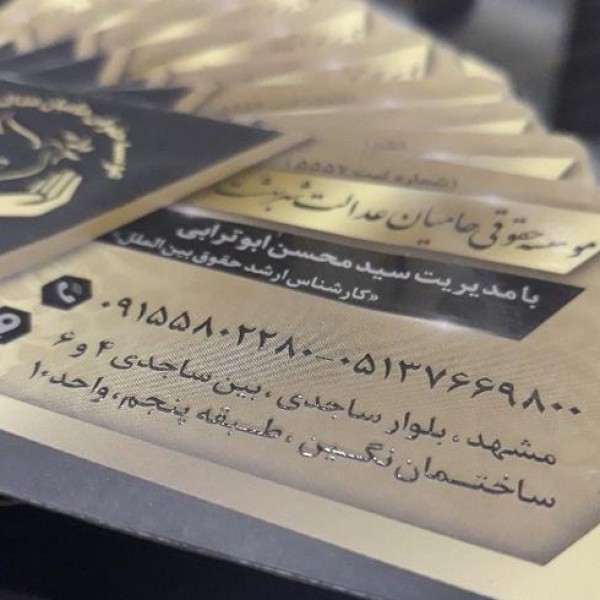 (شماره ثبت ۵۵۵۷)
موسسه حقوقی حامیان عدالت شهر بهشت
با مدیریت سید محسن ابوترابی
«کارشناس ارشد حقوق بین الملل»
۰۹۱۵۵۸۰۲۲۸۰-۰۵۱۳۷۶۶۹۸۰۰
مشهد، بلوار ساجدی، بین ساجدی ۴ و ۶
ساختمان نگین، طبقه پنجم، واحد ۱۰